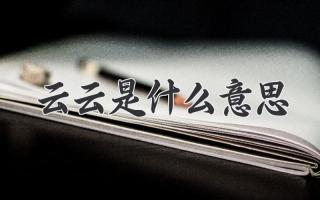 云云是什么意思